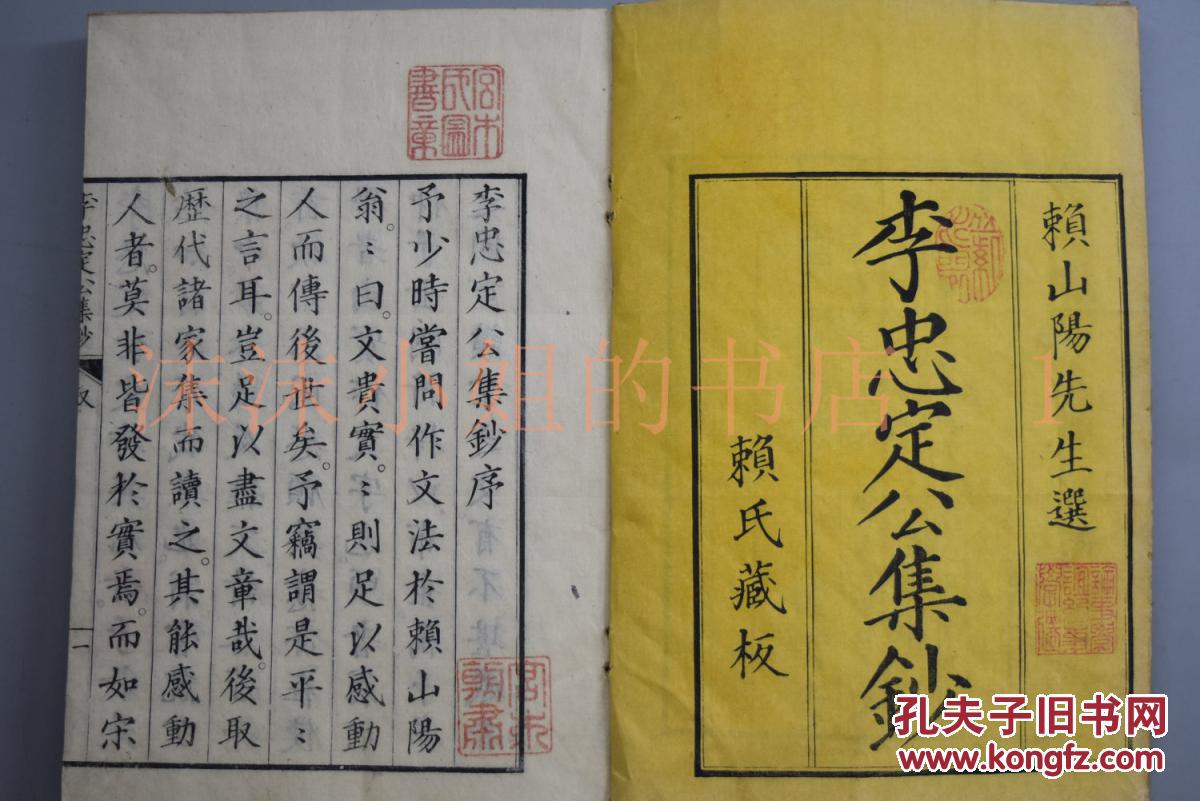 賴山陽先生選
李忠定公集鈔
賴氏藏板
宮木
成圖
書章
李忠定公集鈔序
予少時嘗問作文法於賴山陽
翁〻曰文貴實〻則足以感動
人而傳後世矣予竊謂是平〻
之言耳豈足以盡文章哉後取
歷代諸家集而讀之其能感動
人者莫非皆發於實焉而如宋
李忠定公集鈔
叙
一
沫沫小姐的书店
孔夫子旧书网
www.kongfz.com